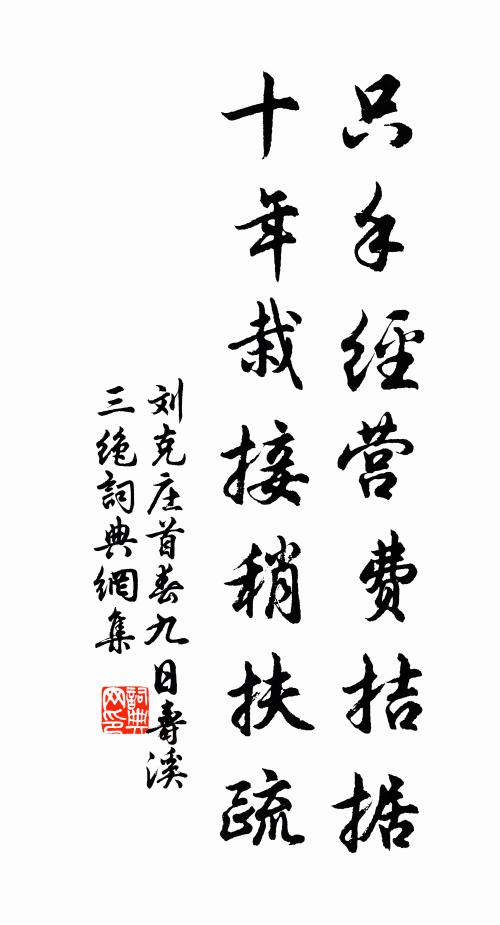 只手經营费拮据
十年栽接稍扶疏
刘克庄首春九日壽溪
三绝詞典網集
詞典
网印